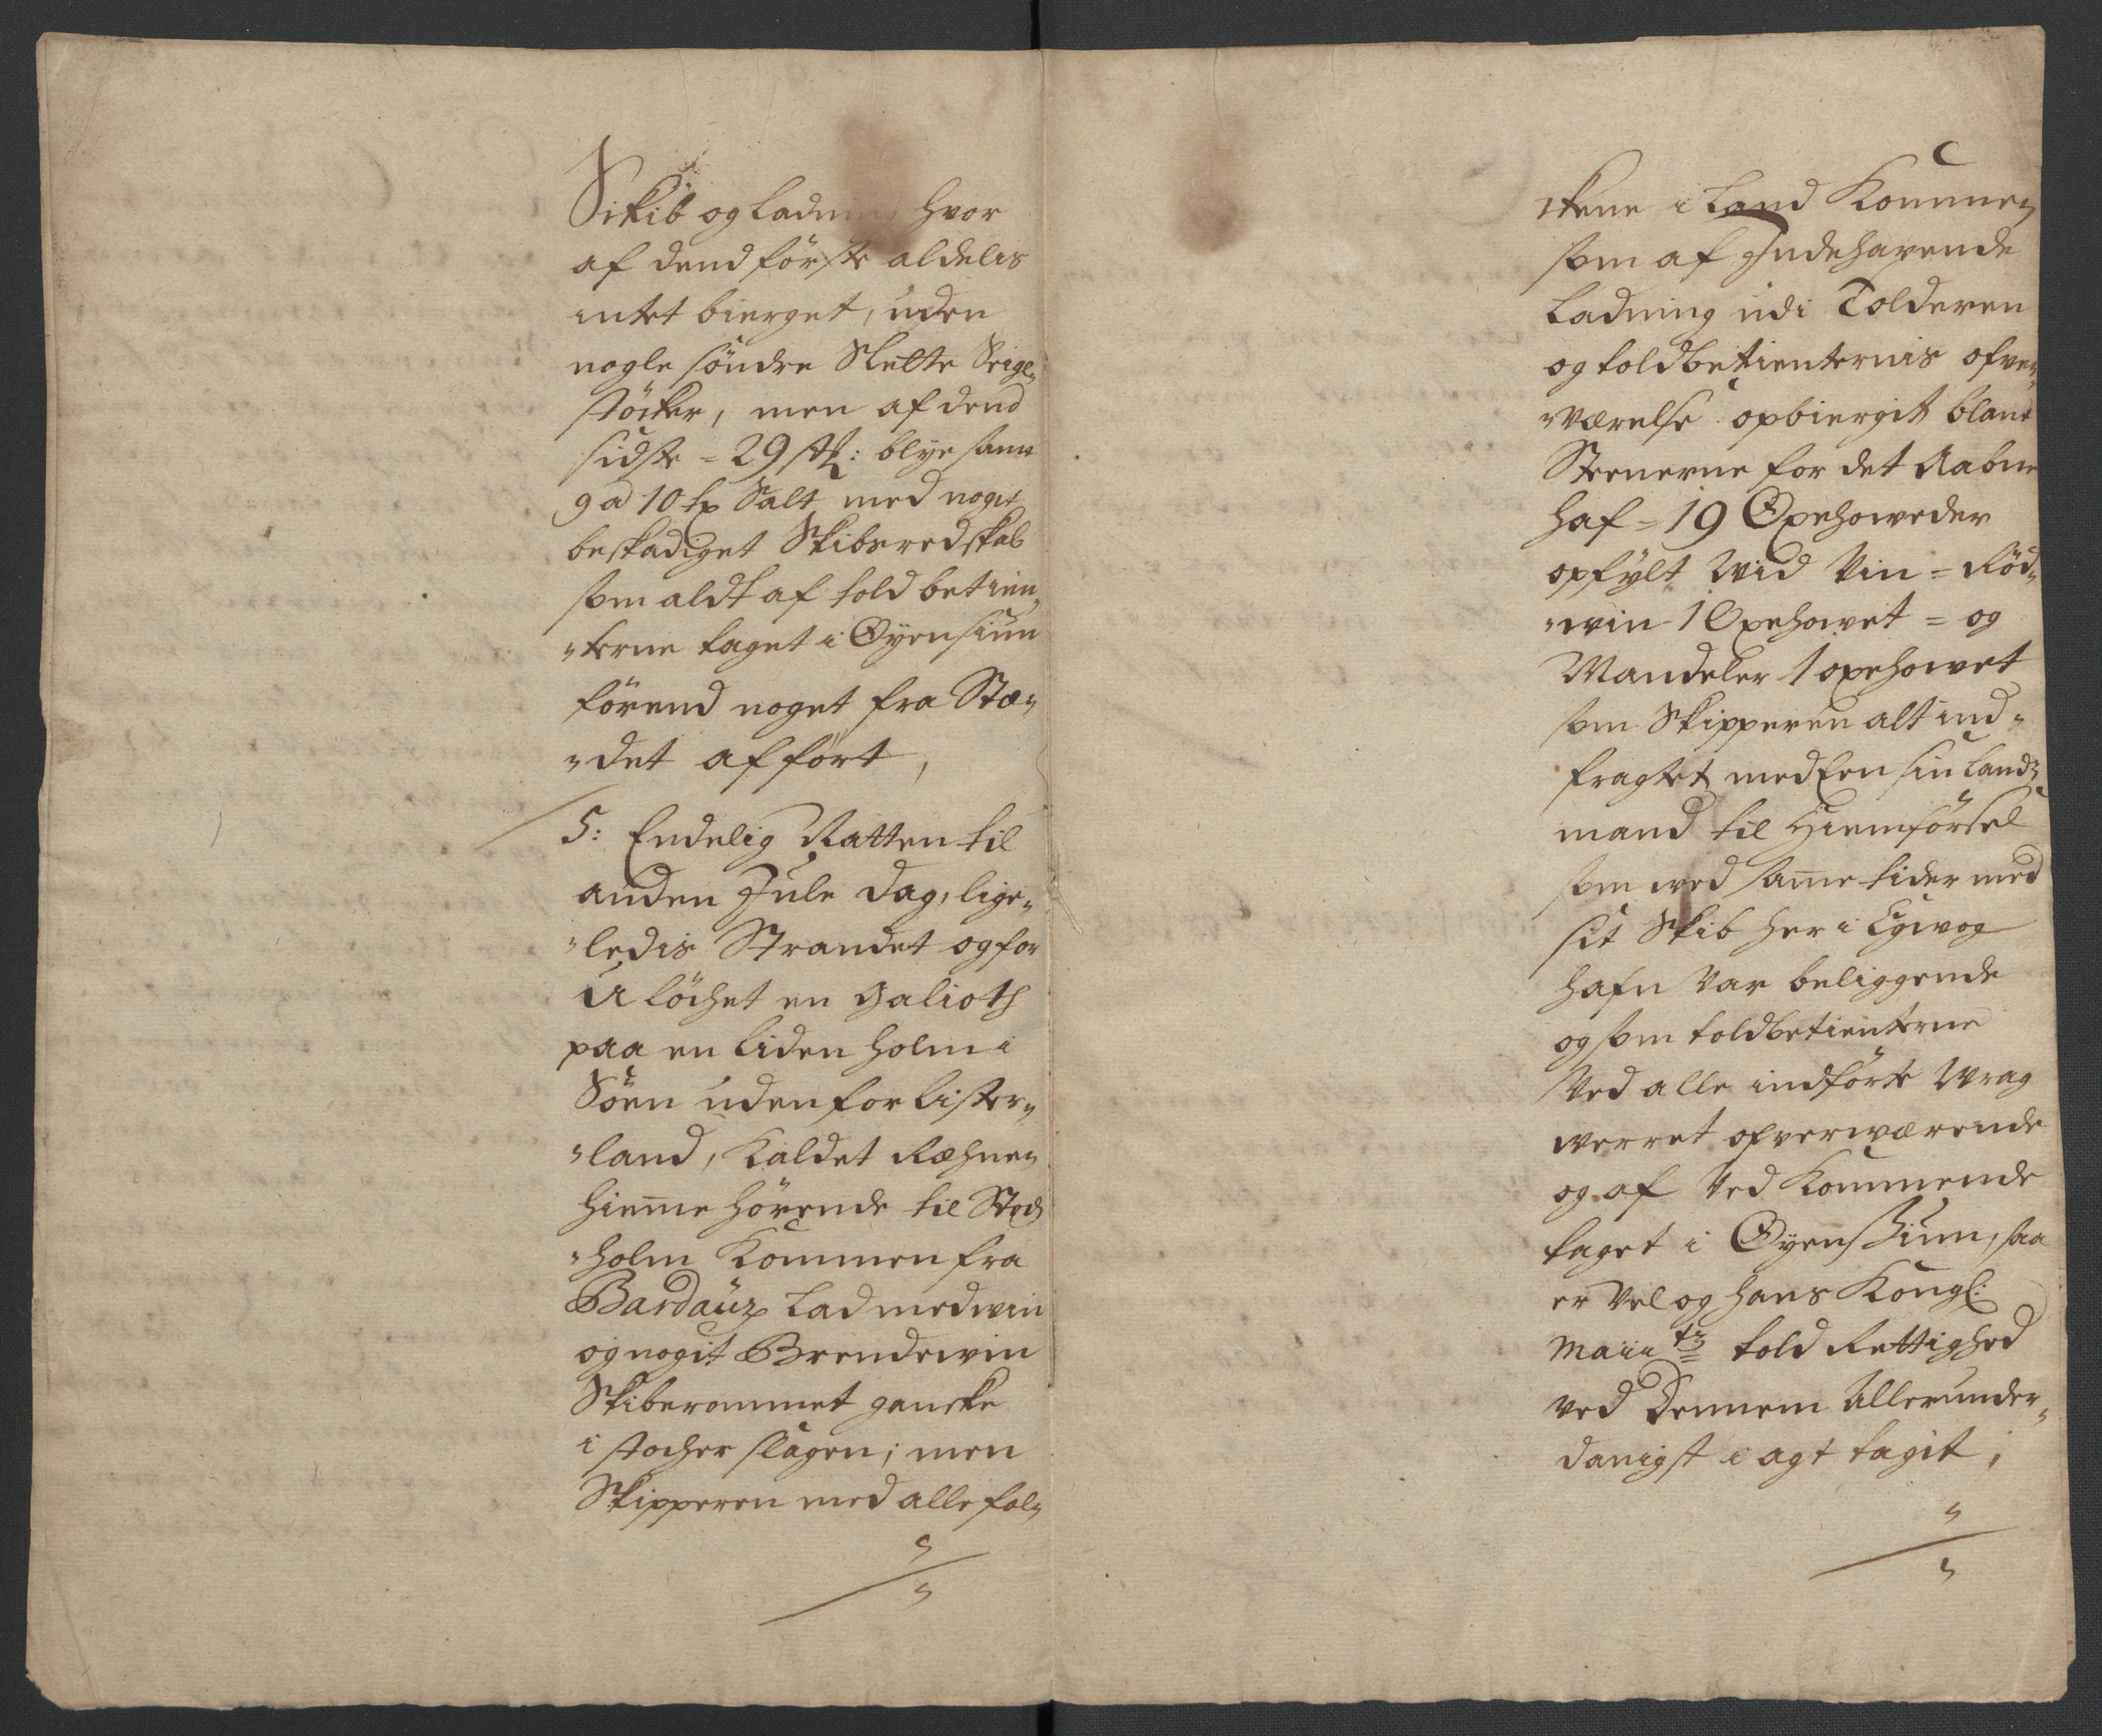 Skib og Ladning hvor
af dend förste aldelis
intet bierget, uden
nogle söndre Slette Seigel„
stöcker, men af dend
sidste = 29 stk: blye samt
9 a 10 tr Salt med nogit
beskadiget Skibsredskab
som aldt af toldbetien„
„terne taget i Øyensiun
förend noget fra Stæ„
„det afført,
5: Endelig Natten til
anden Jule dag, lige„
„ledis Strandet og for
U löchet en Galioth
paa en liden holm i
Söen uden for Lister„
„land, kaldet Ræhnen
hieme hörende til Stoch
„holm kommen fra
Bardaux lad med win
og nogit Brendewin
Skiberommet ganske
i stocher slagen; men
Skipperen med alle fol„
ckene i Land kommen
som af Indehavende
Ladning udi Tolderen
og toldbetienternis ofver„
„værelse opbiergit blant
Steenerne for det Aabne
haf = 19 Oxehoweder
opfylt Wid Vin = Röd„
„win 1 Oxehowet = og
Mandeler 1 oxehowet
som Skipperen alt ind„
fragtet med Een sin Lands
mand til Hiemförsel
som wed same tider med
sit Skib her i Egwog
hafn var beliggende
og som toldbetienterne
Ved alle indförte Wrag
werret ofverværende
og af Ved kommende
taget i Øyensiun, saa
er Vel og hans Kongl:
Maiitz told Rettighed
ved Dennem Allerunder„
danigst i agt tagit;